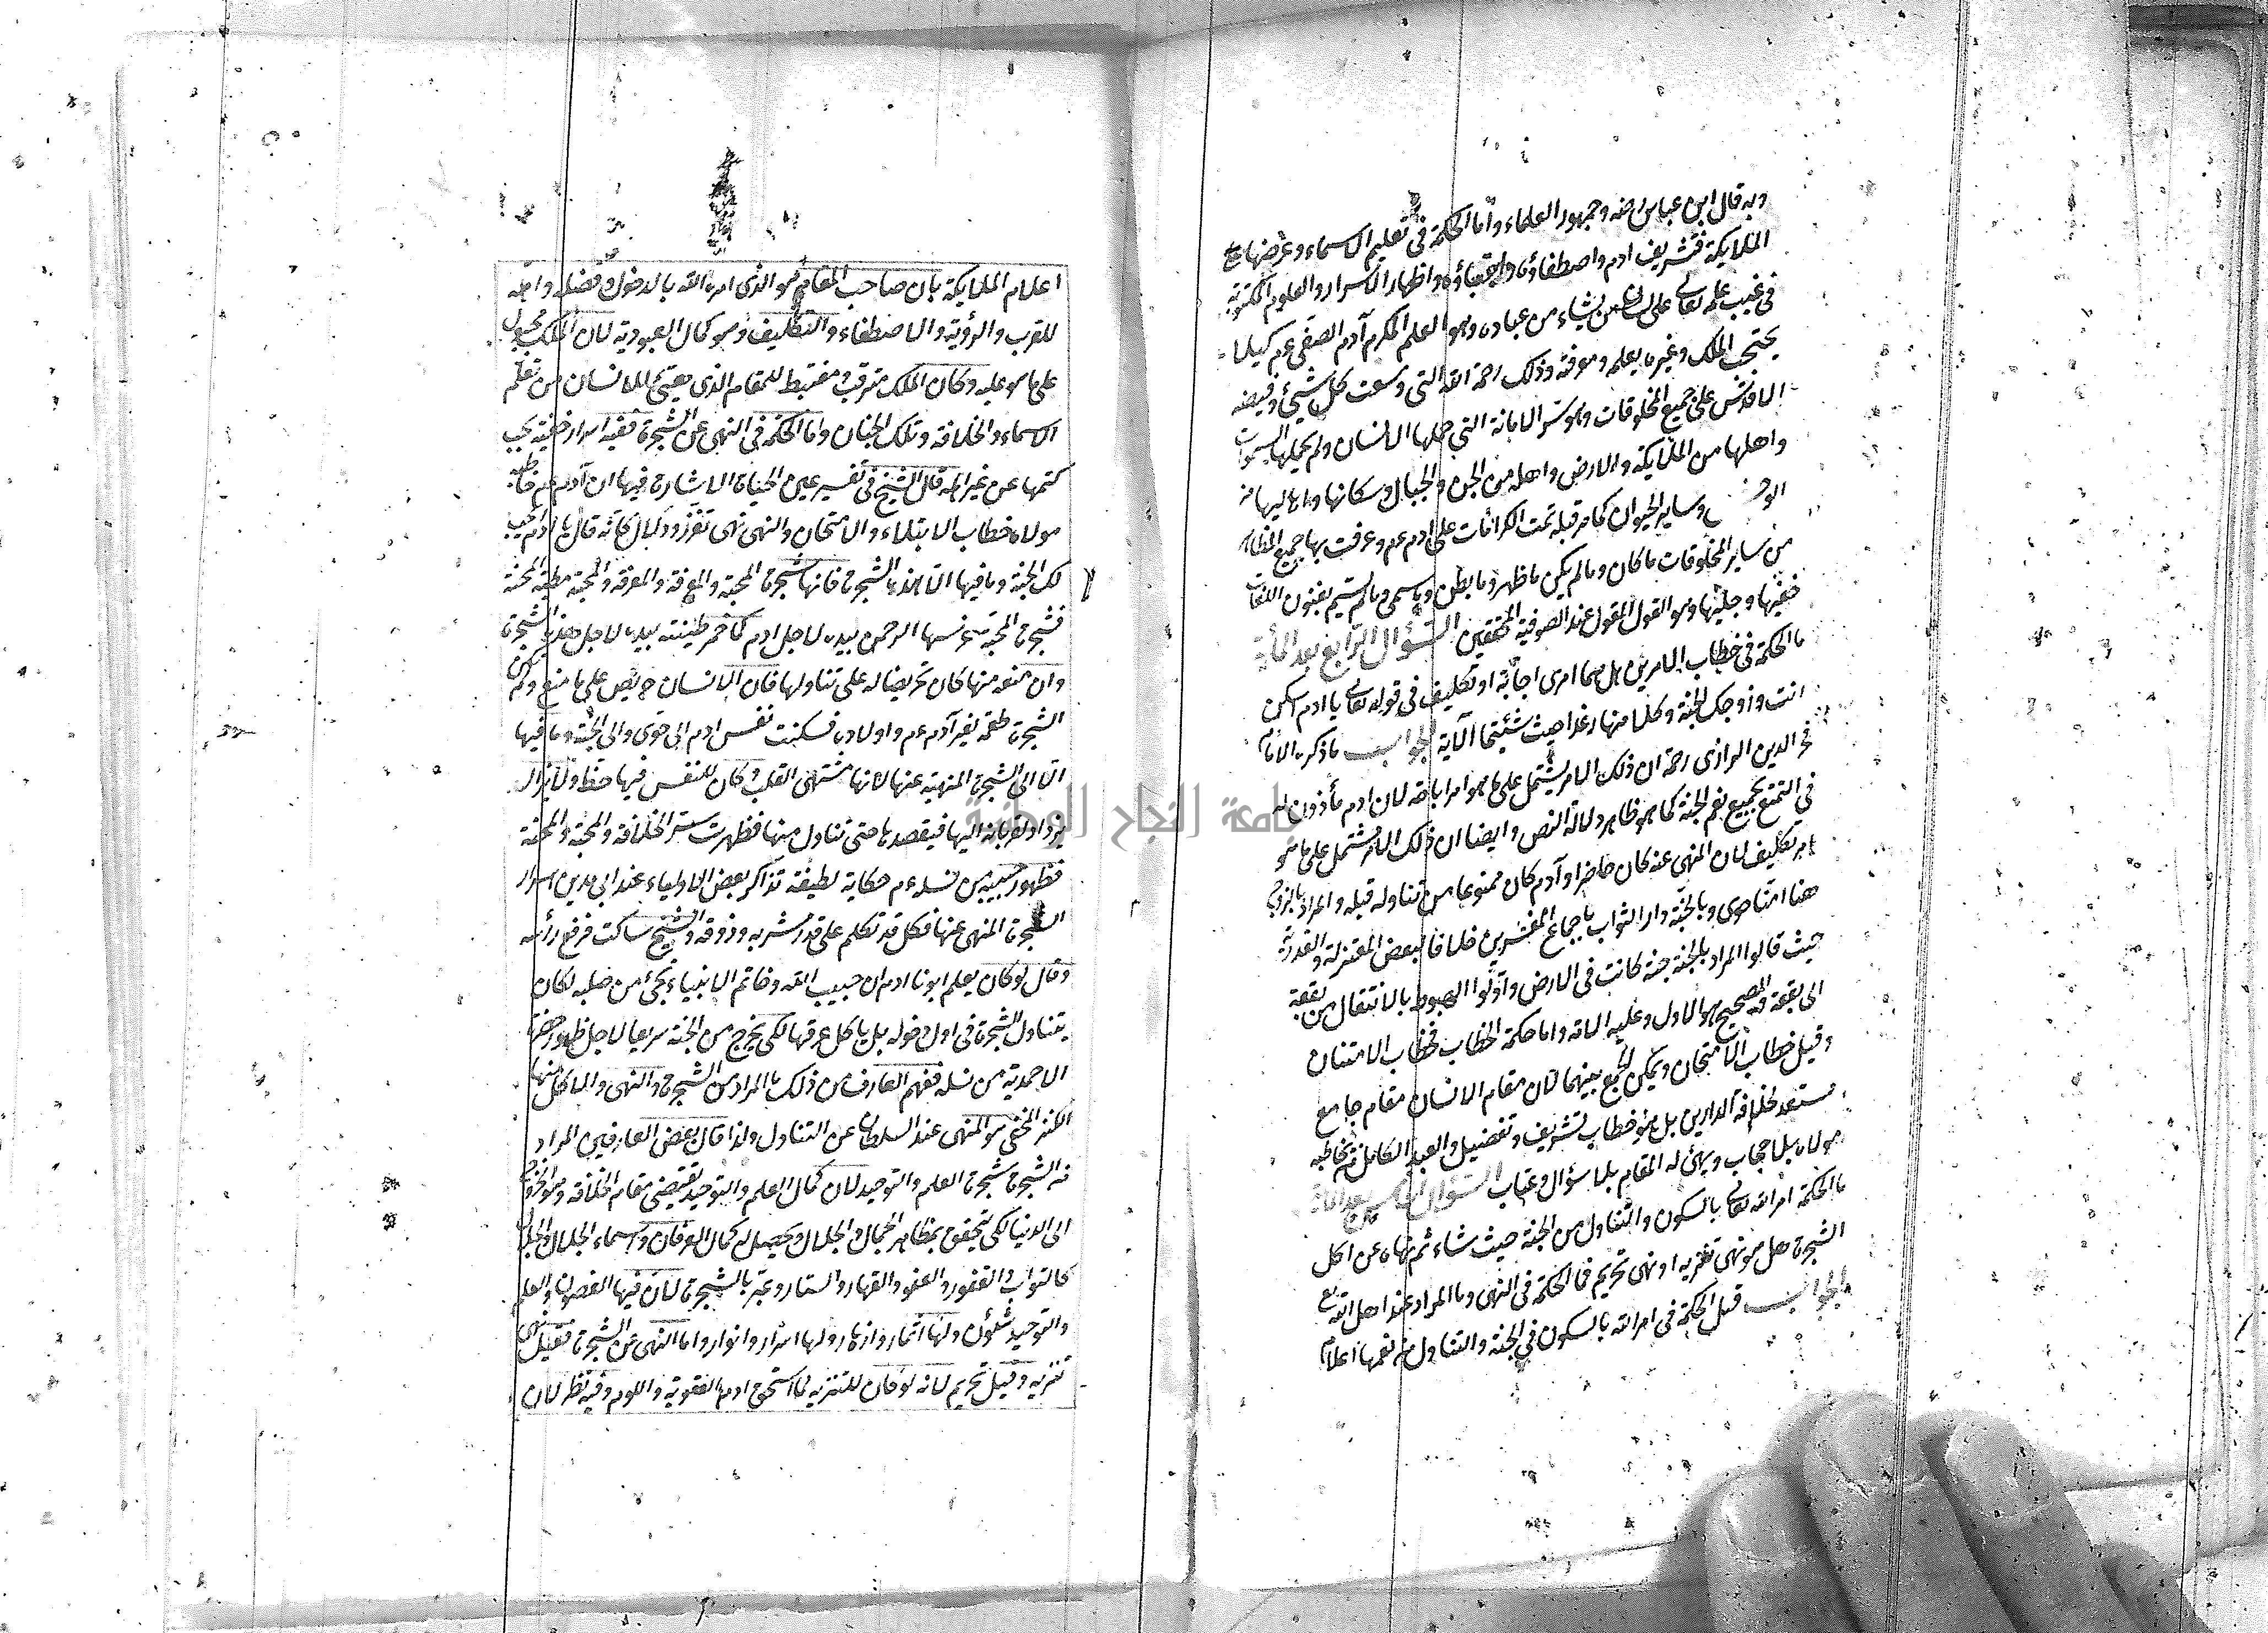 وبه قال ابن عباس رضه وجمهور العلماء واما الحكمة في تعليم الاسماء وعرضها على
الملايكة فتشريف ادم واصطفاؤه واظهار الاسرار والعلوم المكنونة
في غيب علمه تعالى على لسان من يشاء من عباده وهو العلم المكرم آدم الصفي عم كيلا
يحتجب الملك وغيره بعلمه ومعرفة وذلك رحمة الله التي وسعت كل شيئ وفيضه
الاقدس على جميع المخلوقات وهو سر الامانة التي حملها الانسان ولم يحملها السموات
واهلها من الملايكة والارض واهله من الجن والجبال وسكانها واهاليها من
وساير الحيوان كما مر قبله تمت الكرامات على ادم عم وعرفت بها جميع
من ساير المخلوقات ما كان وما لم يكن ما ظهر وما بطن وما سمي وما لم يسم بفنون اللغات
خفيها وجليها وهو القول المقول عند الصوفية المحققين السؤال الرابع بعد المأية
ما الحكمة في خطاب الامرين هل هما امرى اجابة او تكليف في قوله تعالى يا ادم اسكن
انت وزوجك الجنة وكلا منها رغدا حيث شئتما الآية الجواب ما ذكره الامام
فخر الدين الرازى رحمه ان ذلك الامر يشتمل على ما هو امر اباحة لان ادم مأذون له
في التمتع بجميع نعم الجنة كما هو ظاهر دلالة النص وايضا ان ذلك الامر مشتمل على ما هو
امر تكليف لان المنهى عنه كان حاضرا وآدم كان ممنوعا من تناوله قبله والمراد بالزوج
هنا امنا حوى وبالجنة دار الثواب باجماع المفسرين خلافا لبعض المعتزلة والقدرية
حيث قالوا المراد بالجنة جنة كانت في الارض وأولوا الهبوط بالانتقال من بقعة
الى بقعة والصحيح هو الاول وعليه الامة واما حكمة الخطاب فخطاب الامتنان
وقيل خطاب الامتحان ويمكن الجمع بينهما لان مقام الانسان مقام جامع
مستعد لخلافة الدارين بل هو خطاب تشريف وتفضيل والعبد الكامل يخاطبه
مولاه بلا حجاب ويهئ له المقام بلا سؤال وعتاب السؤال الخامس بعد المأية
ما الحكمة امر الله تعالى بالسكون والتناول من الجنة حيث شاء ثم نهاه عن اكل
الشجرة هل هو نهى تنزيه او نهى تحريم فما الحكمة في النهى وما المراد عند اهل الله
الجواب قيل الحكمة في امر الله بالسكون في الجنة والتناول من نعمها اعلام
اعلام الملايكة بان صاحب المقام هو الذى امره الله بالدخول فضله واهله
للقرب والرؤية والاصطفاء والتكليف وهو كمال العبودية لان الملك مجبول
على ما هو عليه وكان الملك مترقب ومغتبط للمقام الذى يهيئ للانسان من تعلم
الاسماء والخلافة وتلك الجنان واما الحكمة في النهى عن الشجرة ففيه اسرار خفية يجب
كتمها عن غير اهله قال الشيخ في تفسير عين الحياة الاشارة فيها ان آدم عم خاطبه
مولاه خطاب الابتلاء والامتحان والنهى نهى تعزز ودلال كأنه قال يا ادم
لك الجنة وما فيها الا هذه الشجرة فانها شجرة المحبة والمعرفة والمعرفة والمحبة مطية المحنة
فشجرة المحبة غرسها الرحمن بيده لاجل ادم كما خمر طينته بيده لاجل هذه الشجرة
وان منعه منها كان تحريضا له على تناولها فان الانسان حريص على ما منع
الشجرة طعمة لغير آدم عم واولاده فسكنت نفس ادم الى حوى والى الجنة وما فيها
الا الى الشجرة المنهية عنها لانها مشتهى القلب وكان للنفس فيها حظ ولا يزال
يزداد توقانه اليها فيقصدها حتى تناول منها فظهرت ستر الخلافة والمحبة والمحنة
فظهور حبيبه من نسله عم حكاية لطيفة تذاكر بعض الاولياء عند ابى مدين اسرار
الشجرة المنهى عنها فكل قد تكلم على قدر مشربه وذوقه والشيخ ساكت فرفع رأسه
وقال لو كان يعلم ابونا ادم ان حبيب الله وخاتم الانبياء يجئ من صلبه لكان
يتناول الشجرة في اول دخوله بل يأكل عرقها لكى يخرج من الجنة سريعا لاجل ظهور حضرة
الاحمدية من نسله ففهم العارف من ذلك ما المراد من الشجرة والنهى والاكل منها
الكنز المخفى هو المنهى عند السلطان عن التناول ولذا قال بعض العارفين المراد
من الشجرة شجرة العلم والتوحيد لان كمال العلم والتوحيد يقتضى مقام الخلافة وهو الخروج
الى الدنيا لكى يتحقق بمظاهر الجمال والجلال ويحصل له كمال العرفان واسماء الجلال والجمال
كالتواب والغفور والعفو والقهار والستار وعبر بالشجرة لان فيها الغصون والعلم
والتوحيد شئون ولها اثمار وازهار ولها اسرار وانوار واما النهى عن الشجرة فقيل نهى
تنزيه وقيل تحريم لانه لو كان للتنزيه لما استحق ادم العقوبة واللوم وفيه نظر لان
جامعة النجاح الوطنية